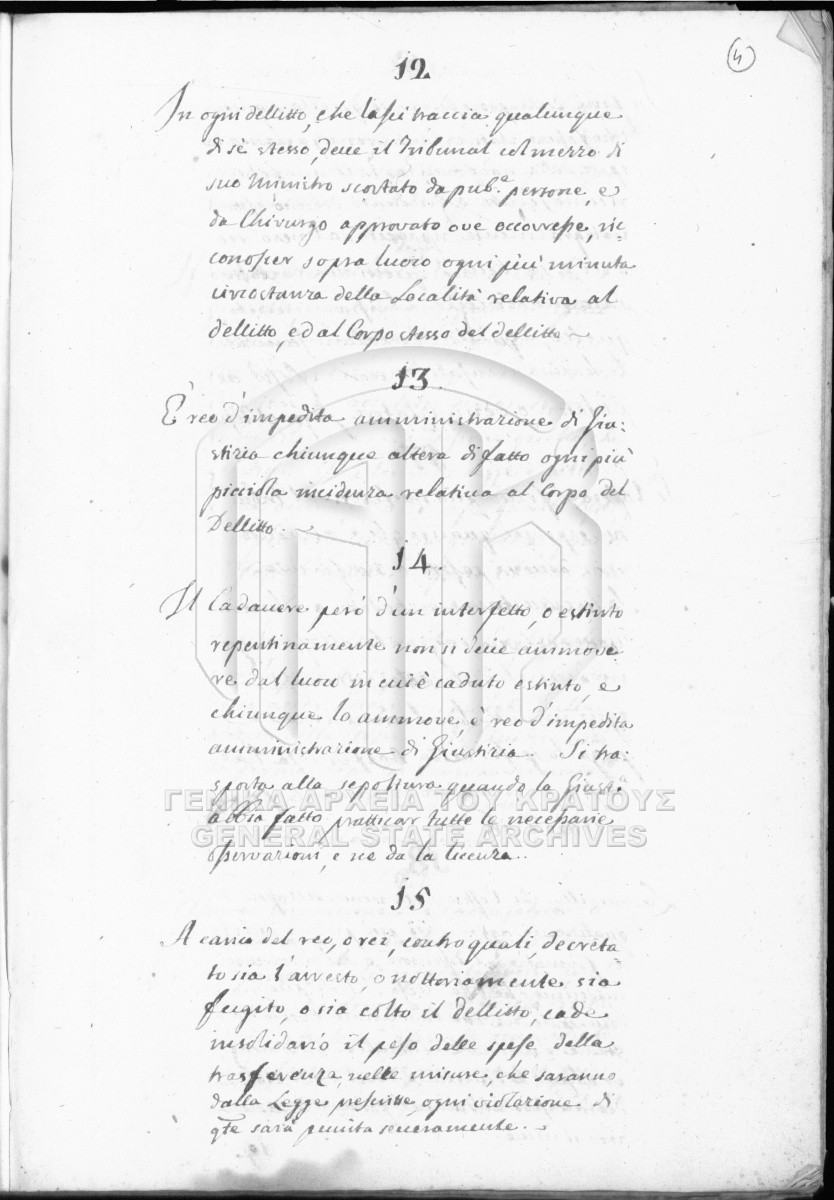 4
12
In ogni delitto, che lasci traccia qualunque
di sè stesso, deve il Tribunal col mezzo di
suo Ministro scortato da pub.ª persone, e
da Chirurgo approvato ove occorresse, ric=
conoscer sopra luoco ogni più minuta
circostanza della Località relativa al
dellitto, ed al Corpo stesso del dellitto
13.
È reo d'impedita amministrazione di Giu:
stizia chiunque altera di fatto ogni più
picciola incidenza relativa al Corpo del
Dellitto.
14.
Il Cadavere però d'un interfetto, o estinto
repentinamente non si deve ammove
re dal luoco in cui è caduto estinto, e
chiunque lo ammove, è reo d'impedita
amministrazione di Giustizia. Si tra:
sporta alla sepoltura quando la Giust.ª
abbia fatto pratticar tutte le necessarie
osservazioni, e ne da la licenza.
ΓΕΝΙΚΑ ΑΡΧΕΙΑ ΤΟΥ ΚΡΑΤΟΥΣ
GENERAL STATE ARCHIVES
15
A carico del reo, o rei, contro quali, decreta
to sia l'arresto, o nottoriamente sia
fugito, o sia colto il dellitto, cade
insolidario il peso delle spese della
trasferenza, nelle misure, che saranno
dalla Legge prescritte, ogni violazione di
qte sarà punita severamente.